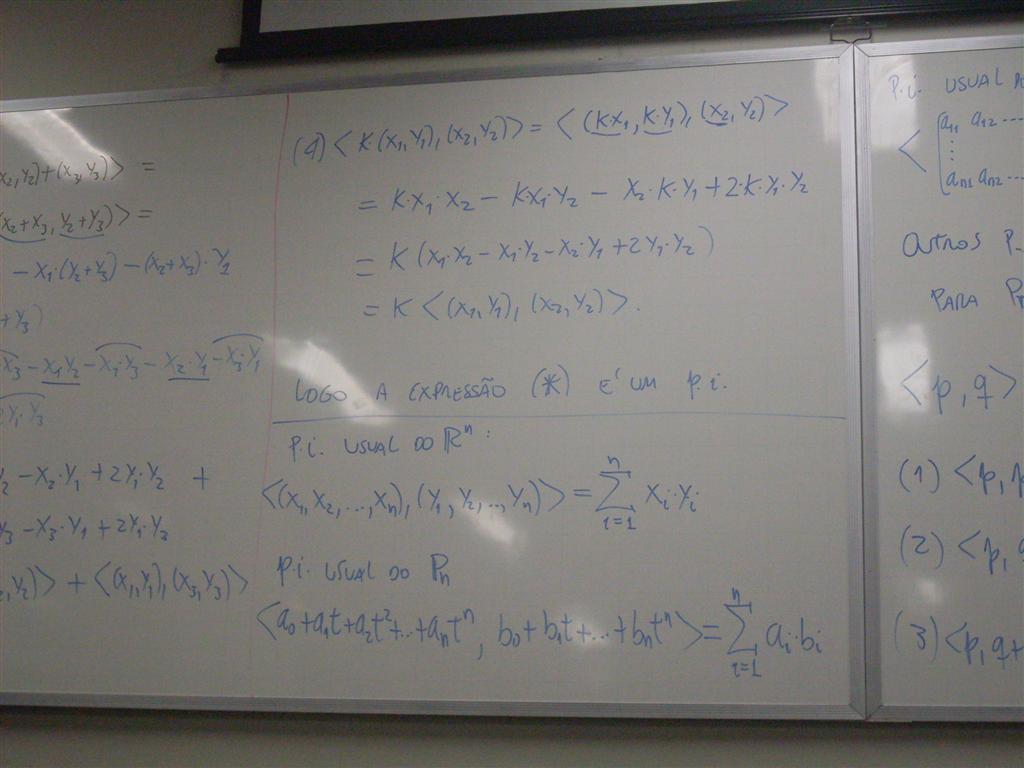 x₂,y₂)+(x₃,y₃)> =
(x₂+x₃, y₂+y₃)> =
- x₁·(y₂+y₃) - (x₂+x₃)·y₁
+y₃)
x₃ - x₁y₂ - x₁·y₃ - x₂·y₁ - x₃·y₁
2y₁·y₃
y₂ - x₂·y₁ + 2y₁·y₂ +
y₃ - x₃·y₁ + 2y₁·y₃
₂,y₂)> + <(x₁,y₁),(x₃,y₃)>
(4) <K·(x₁,y₁),(x₂,y₂)> = <(K·x₁, K·y₁),(x₂,y₂)>
= K·x₁·x₂ - K·x₁·y₂ - x₂·K·y₁ + 2·K·y₁·y₂
= K(x₁·x₂ - x₁·y₂ - x₂·y₁ + 2y₁·y₂)
= K <(x₁,y₁),(x₂,y₂)>.
LOGO A EXPRESSÃO (*) E' UM p.i.
p.i. USUAL DO ℝⁿ:
<(x₁,x₂,...,xₙ),(y₁,y₂,..,yₙ)> = ∑ⁿᵢ₌₁ xᵢ·yᵢ
p.i. USUAL DO Pₙ
<a₀+a₁t+a₂t²+...+aₙtⁿ, b₀+b₁t+...+bₙtⁿ> = ∑ⁿᵢ₌₁ aᵢ·bᵢ
p.i. USUAL
< [a₁₁ a₁₂ ...
⋮
aₙ₁ aₙ₂ ...
OUTROS P.
PARA
<p,q>
(1) <p,
(2) <p,
(3) <p, q+